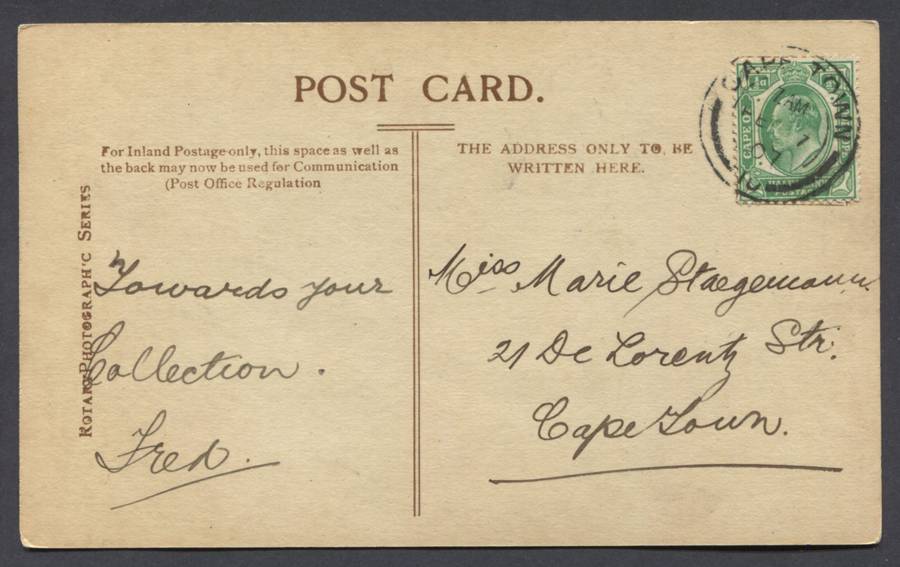 POST CARD.
For Inland Postage only, this space as well as
the back may now be used for Communication
(Post Office Regulation
THE ADDRESS ONLY TO BE
WRITTEN HERE.
ROTARY PHOTOGRAPHIC SERIES
Towards your
Collection.
Fred.
Miss Marie Staegemann.
21 De Lorentz Str.
Cape Town.
CAPE TOWN
1
07
CAPE O